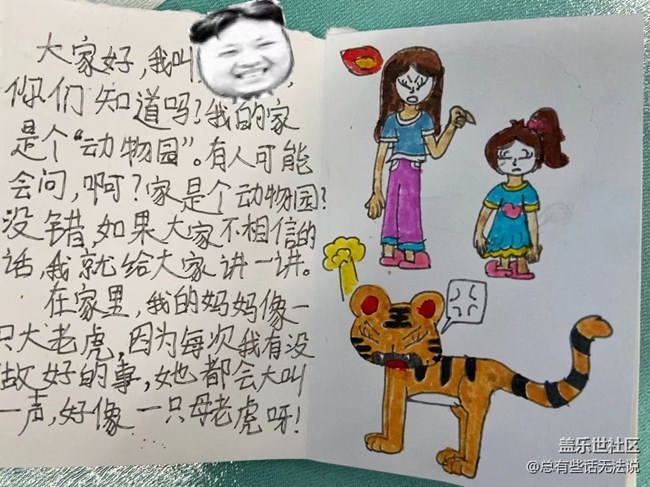 大家好，我叫，
你们知道吗？我的家
是个“动物园”。有人可能
会问，啊？家是个动物园？
没错，如果大家不相信的
话，我就给大家讲一讲。
在家里，我的妈妈像一
只大老虎，因为每次我有没
做好的事，她都会大叫
一声，好像一只母老虎呀！
盖乐世社区
@总有些话无法说